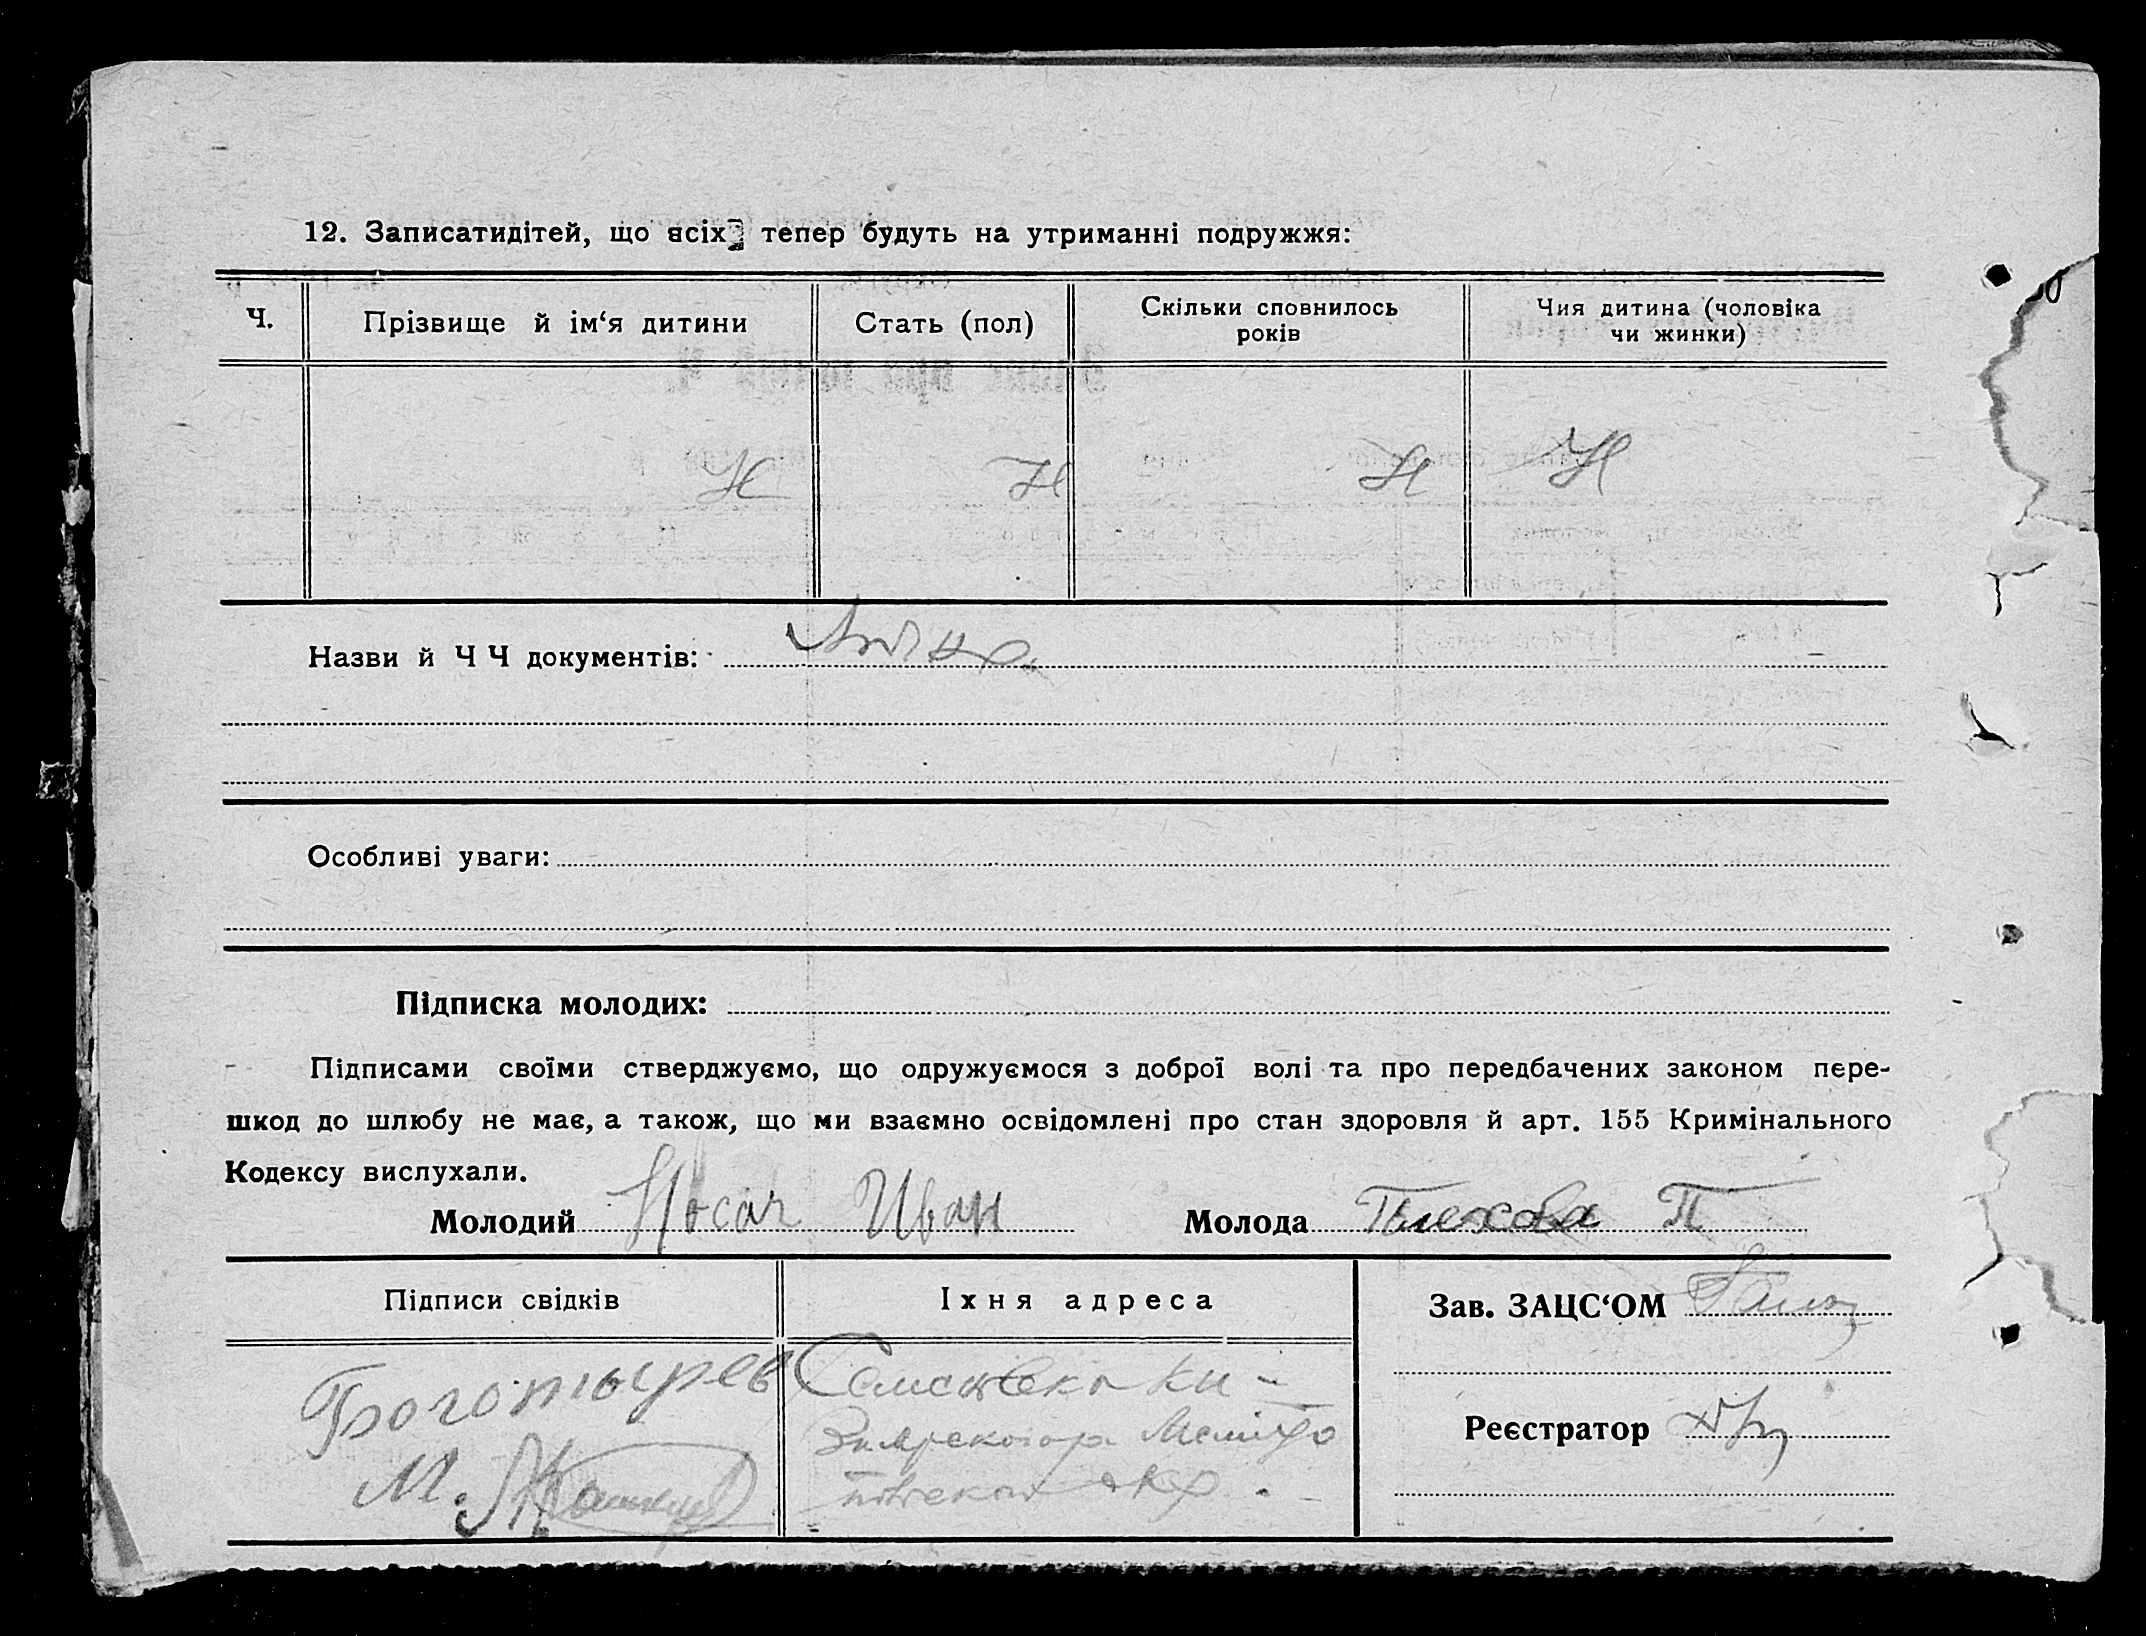 12. Записатидітей, що всіх тепер будуть на утриманні подружжя:
Ч.
Прізвище й ім‘я дитини
Стать (пол)
Скільки сповнилось
років
Чия дитина (чоловіка
чи жинки)
Н Н Н Н
Назви й Ч Ч документів:
Особливі уваги:
Підписка молодих:
Підписами своїми стверджуємо, що одружуємося з доброї волі та про передбачених законом пере-
шкод до шлюбу не має, а також, що ми взаємно освідомлені про стан здоровля й арт. 155 Кримінального
Кодексу вислухали.
Молодий Носач Иван Молода П
Підписи свідків
Іхня адреса
Зав. ЗАЦС‘ОМ
Богатырев
М.
Реєстратор